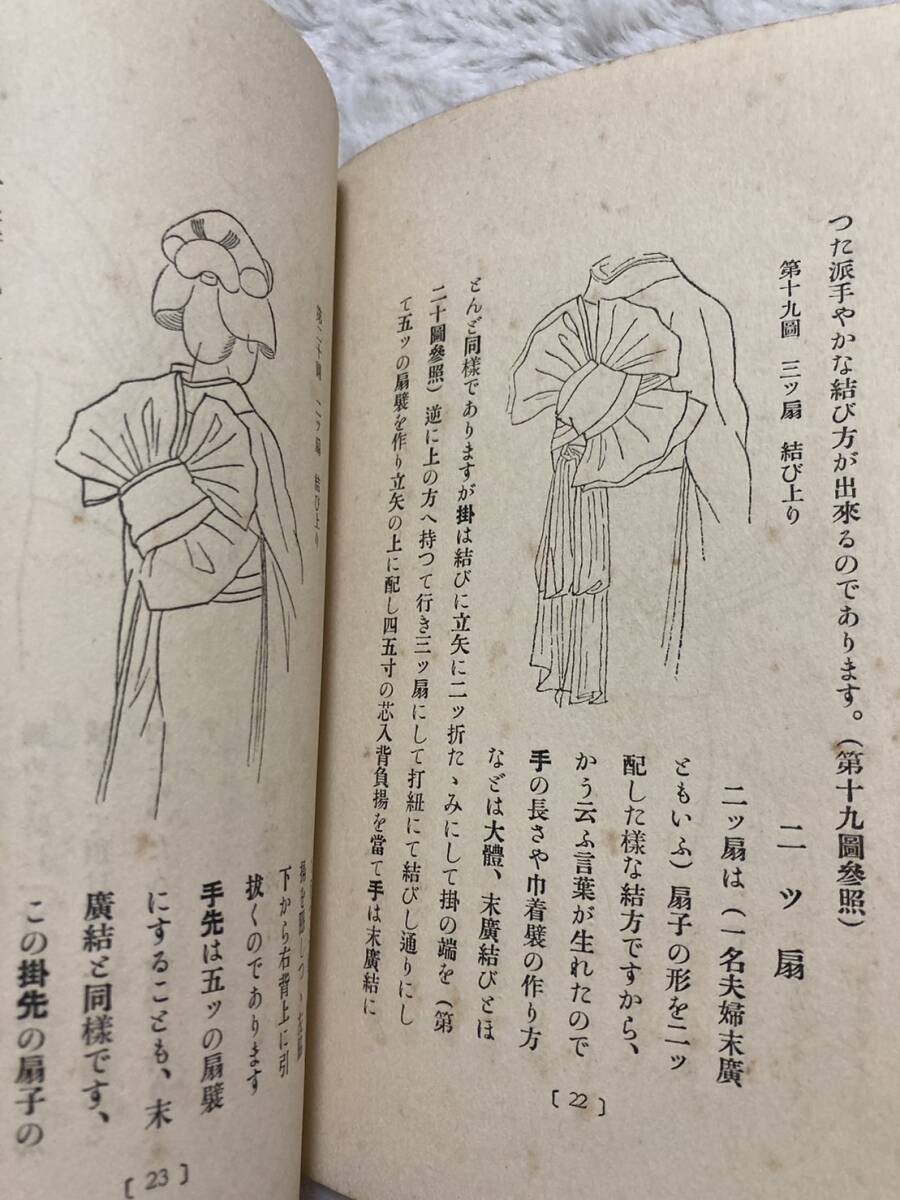 つた派手やかな結び方が出來るのであります。(第十九圖參照)
第十九圖　三ッ扇　結び上り
二ッ扇
二ッ扇は(一名夫婦末廣
ともいふ)扇子の形を二ッ
配した樣な結方ですから、
かう云ふ言葉が生れたので
手の長さや巾着襞の作り方
などは大體、末廣結びとほ
とんど同樣でありますが掛は結びに立矢に二ッ折たゝみにして掛の端を(第
二十圖參照)逆に上の方へ持つて行き三ッ扇にして打紐にて結びし通りにし
て五ッの扇襞を作り立矢の上に配し四五寸の芯入背負揚を當て手は末廣結に
[22]
結び上り
下から右背上に引
拔くのであります
手先は五ッの扇襞
にすることも、末
廣結と同樣です、
この掛先の扇子の
[23]